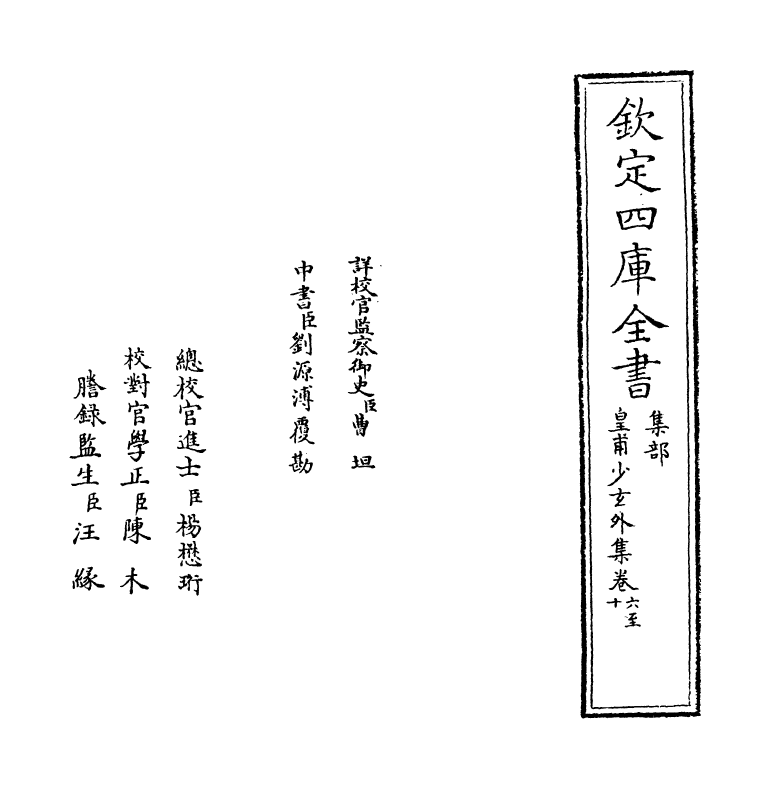 欽定四庫全書
集部
皇甫少玄外集卷六至十
詳校官監察御史臣曹坦
中書臣劉源溥覆勘
總校官進士臣楊懋珩
校對官學正臣陳木
謄録監生臣汪緣